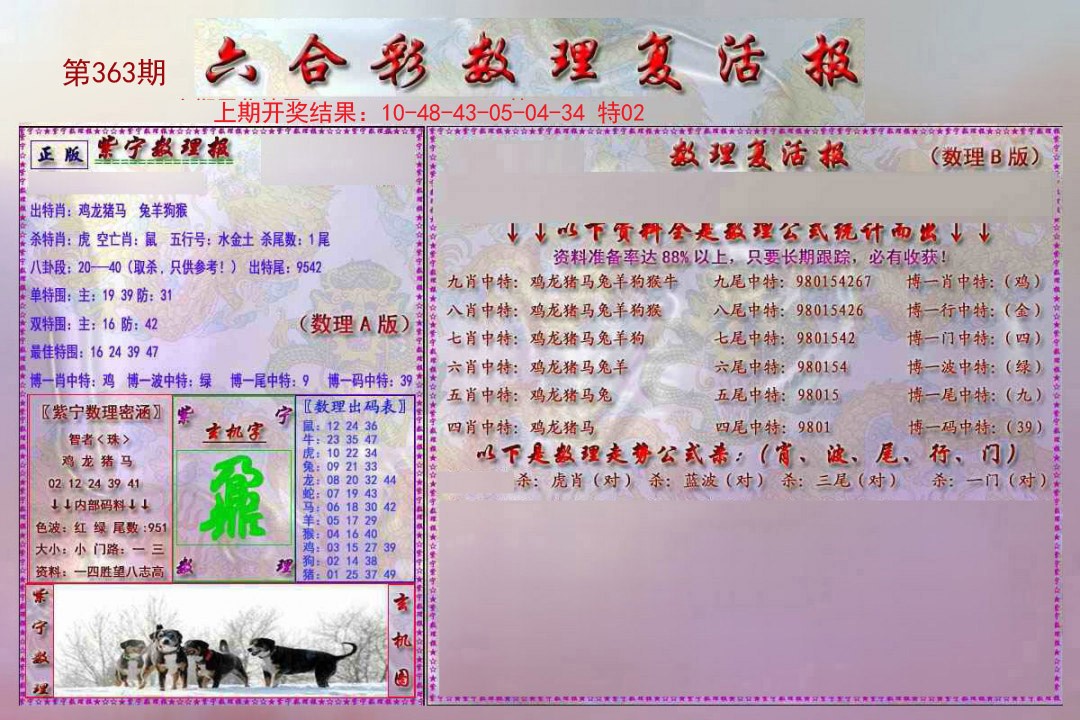 六合彩数理复活报
第363期
上期开奖结果：10-48-43-05-04-34 特02
正版 紫宁数理报
出特肖：鸡龙猪马 兔羊狗猴
杀特肖：虎 空亡肖：鼠 五行号：水金土 杀尾数：1尾
八卦段：20——40（取杀，只供参考！） 出特尾：9542
单特围：主：19 39 防：31
双特围：主：16 防：42
（数理A版）
最佳特围：16 24 39 47
博一肖中特：鸡 博一波中特：绿 博一尾中特：9 博一码中特：39
〖紫宁数理密涵〗
智者<珠>
鸡 龙 猪 马
02 12 24 39 41
↓↓内部码料↓↓
色波：红 绿 尾数：951
大小：小 门路：一 三
资料：一四胜望八志高
紫 宁
玄机字
数 理
〖数理出码表〗
鼠：12 24 36
牛：23 35 47
虎：10 22 34
兔：09 21 33
龙：08 20 32 44
蛇：07 19 43
马：06 18 30 42
羊：05 17 29
猴：04 16 40
鸡：03 15 27 39
狗：02 14 38
猪：01 25 37 49
紫宁数理
玄机图
数理复活报 （数理B版）
↓↓以下资料全是数理公式统计而出↓↓
资料准备率达88%以上，只要长期跟踪，必有收获！
九肖中特：鸡龙猪马兔羊狗猴牛 九尾中特：980154267 博一肖中特：（鸡）
八肖中特：鸡龙猪马兔羊狗猴 八尾中特：98015426 博一行中特：（金）
七肖中特：鸡龙猪马兔羊狗 七尾中特：9801542 博一门中特：（四）
六肖中特：鸡龙猪马兔羊 六尾中特：980154 博一波中特：（绿）
五肖中特：鸡龙猪马兔 五尾中特：98015 博一尾中特：（九）
四肖中特：鸡龙猪马 四尾中特：9801 博一码中特：（39）
以下是数理走势公式杀：（肖、波、尾、行、门）
杀：虎肖（对） 杀：蓝波（对） 杀：三尾（对） 杀：一门（对）